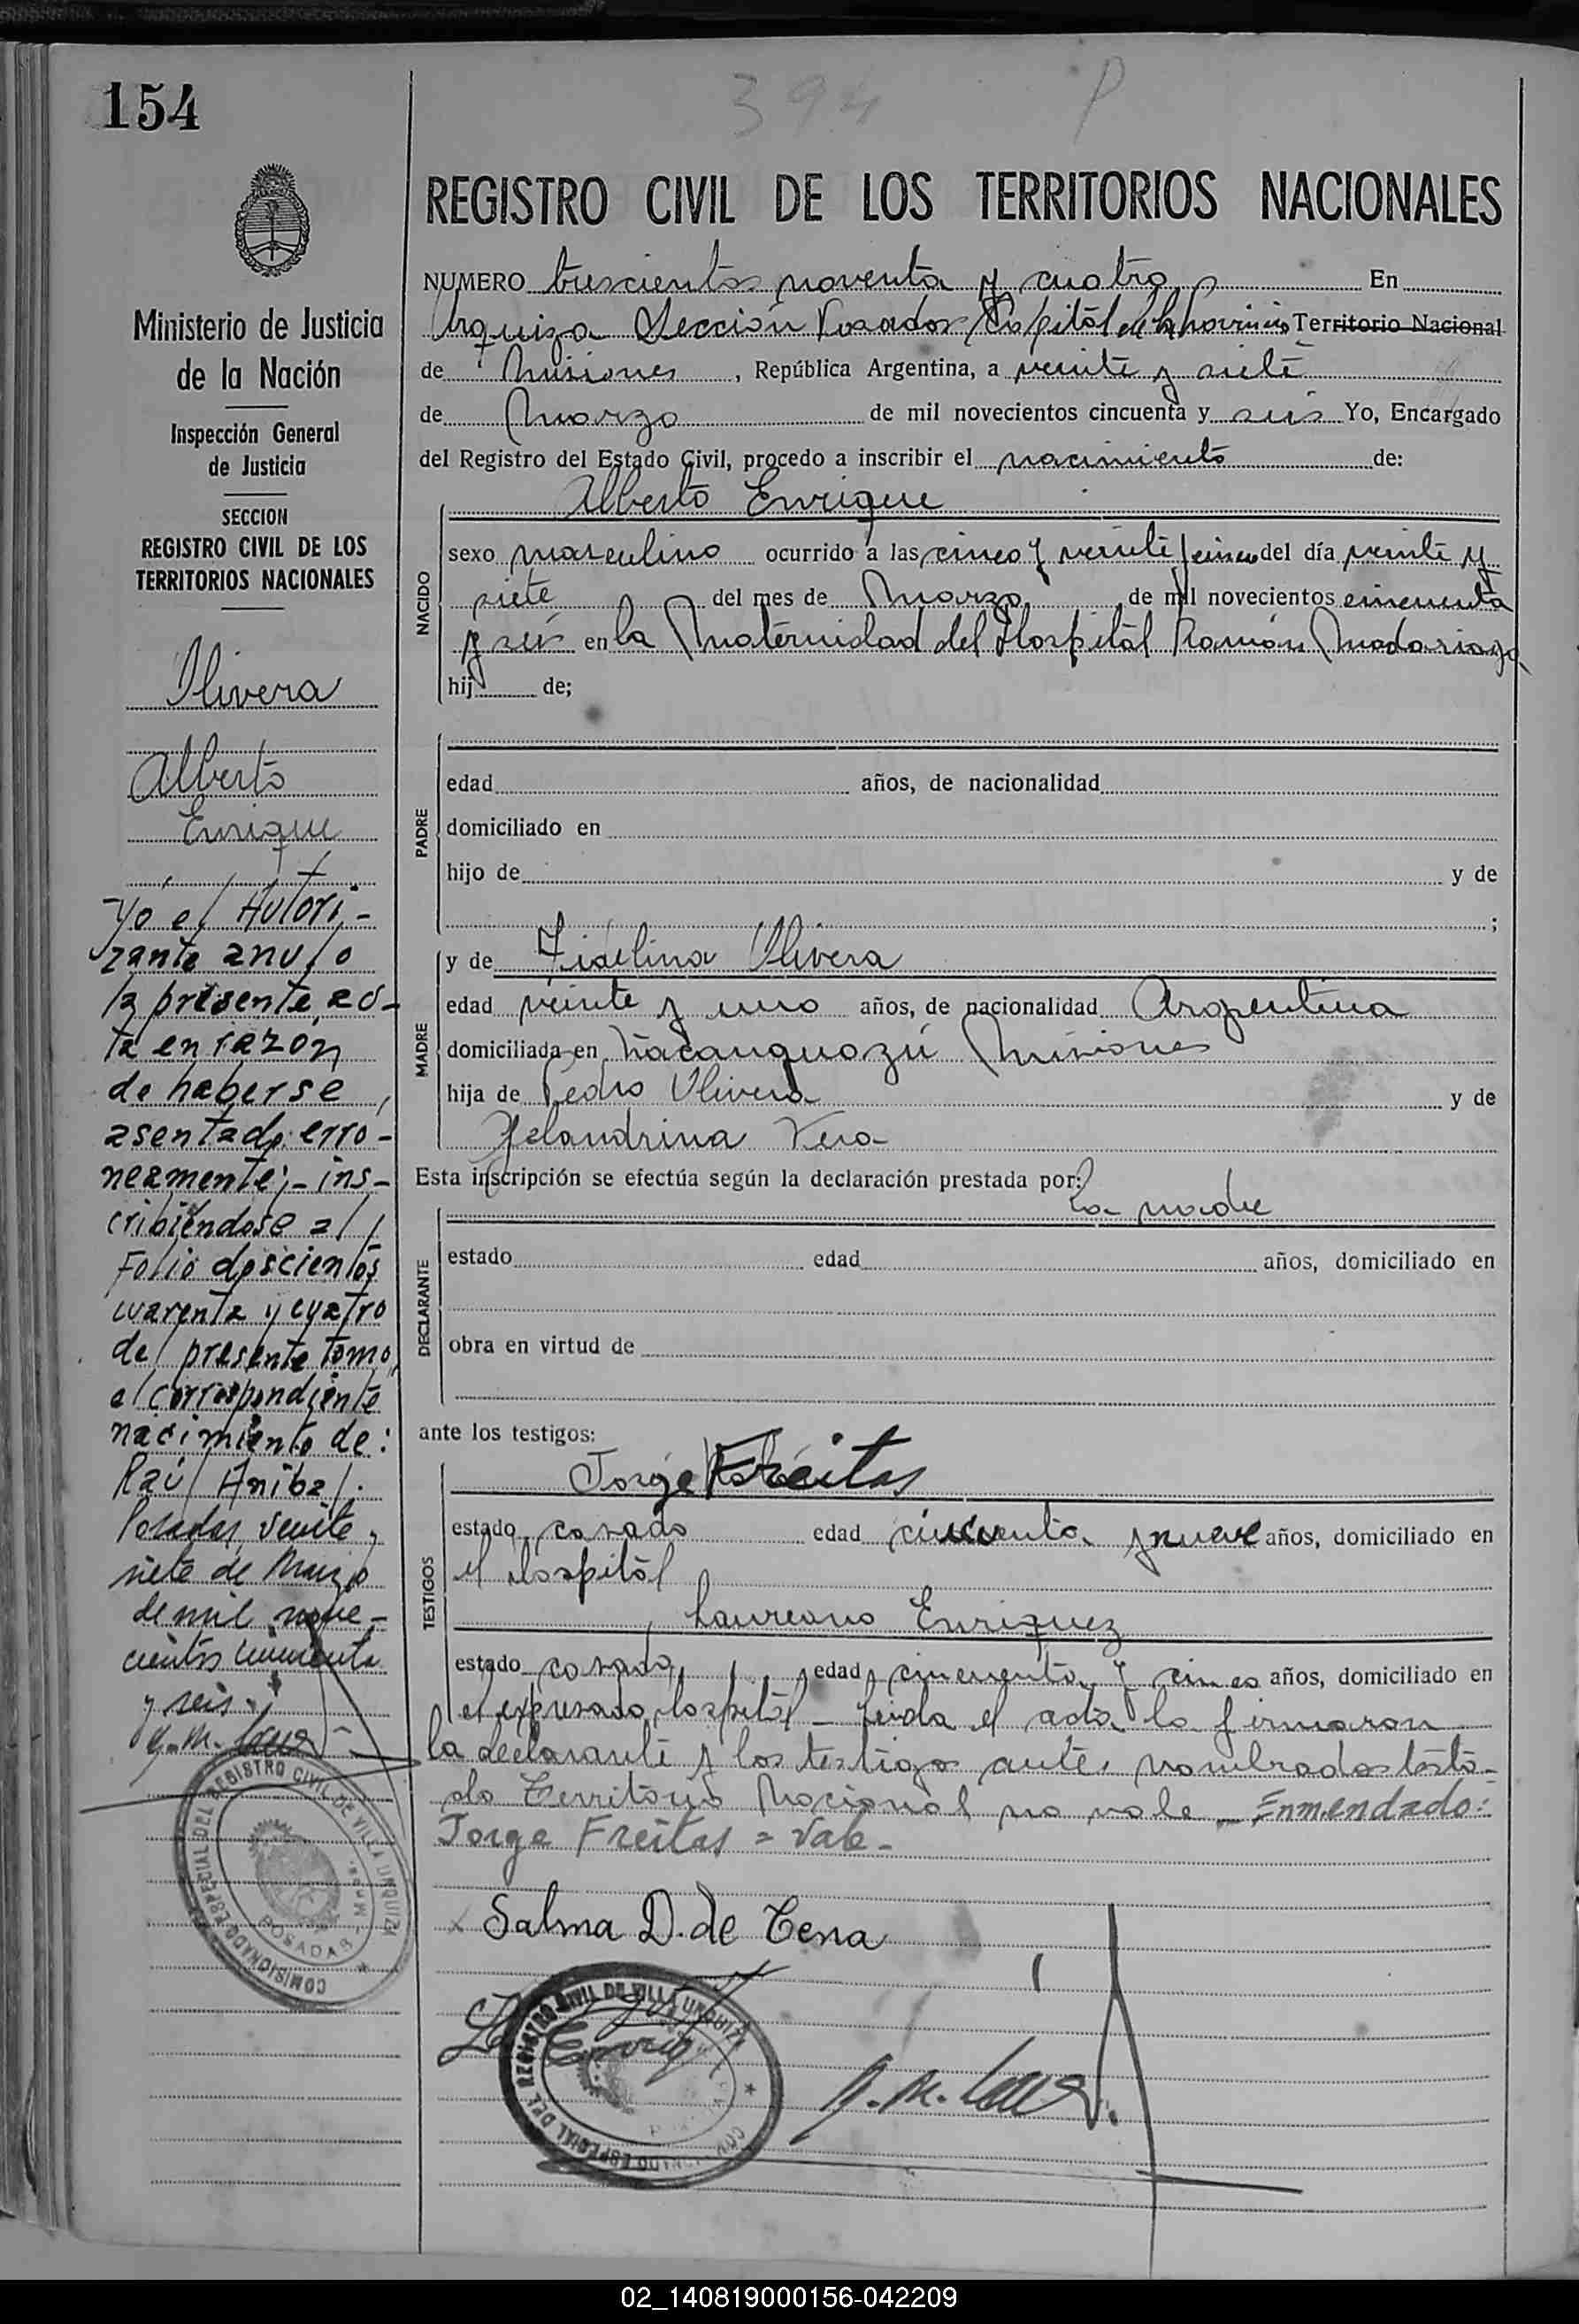 154
394 P
REGISTRO CIVIL DE LOS TERRITORIOS NACIONALES
Ministerio de Justicia
de la Nación
Inspección General
de Justicia
SECCION
REGISTRO CIVIL DE LOS
TERRITORIOS NACIONALES
Olivera
Alberto
Enrique
Yo el Autori-
zante anulo
la presente ac-
ta en razón
de haberse
asentado erro-
neamente;- ins-
cribiéndose al
Folio doscientos
cuarenta y cuatro
del presente tomo,
el correspondiente
nacimiento de:
Raúl Aníbal.
Posadas, veinte y
siete de Marzo
de mil nove-
cientos cincuenta
y seis.-
NUMERO trescientos noventa y cuatro En
Urquiza Sección Posados Capitál de la Provincia Territorio Nacional
de Misiones, República Argentina, a veinte y siete
de Marzo de mil novecientos cincuenta y seis Yo, Encargado
del Registro del Estado Civil, procedo a inscribir el nacimiento de:
Alberto Enrique
NACIDO
sexo masculino ocurrido a las cinco y veinte y cinco del día veinte y
siete del mes de Marzo de mil novecientos cincuenta
y seis en la Maternidad del Hospitál Ramón Madariaga
hij de;
PADRE
edad años, de nacionalidad
domiciliado en
hijo de y de
;
MADRE
y de Fidelina Olivera
edad veinte y uno años, de nacionalidad Argentina
domiciliada en Ñacanguazú Misiones
hija de Pedro Olivera y de
Gelandrina Vera
Esta inscripción se efectúa según la declaración prestada por:
la madre
DECLARANTE
estado edad años, domiciliado en
obra en virtud de
ante los testigos:
TESTIGOS
Jorge Freitas
estado casado edad cincuenta y nueve años, domiciliado en
el Hospitál
Laureano Enriquez
estado casado edad cincuenta y cinco años, domiciliado en
el expresado hospitál - Leida el acta la firmaron
la declarante y los testigos antes nombrados testa-
do Territorio Nacional no vale - Enmendado:
Jorge Freitas = Vale -
Salma D. de Cena
REGISTRO CIVIL DE VILLA URQUIZA
COMISIONADO ESPECIAL DEL
POSADAS - Mnes.
REGISTRO CIVIL DE VILLA URQUIZA
ESPECIAL DEL
02_140819000156-042209